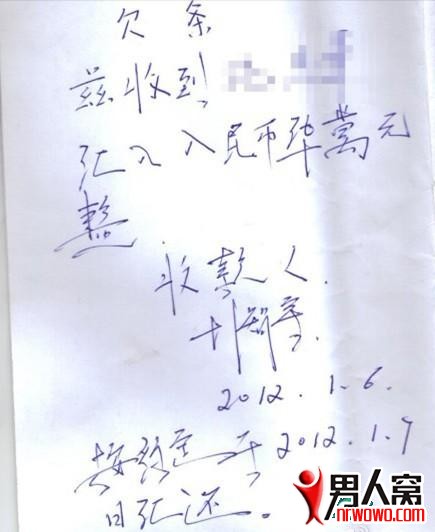 欠条
兹收到
汇入人民币肆萬元
整.
收款人.
2012.1.6.
于2012.1.9
日汇还。
男人窝
nr.wowo.com